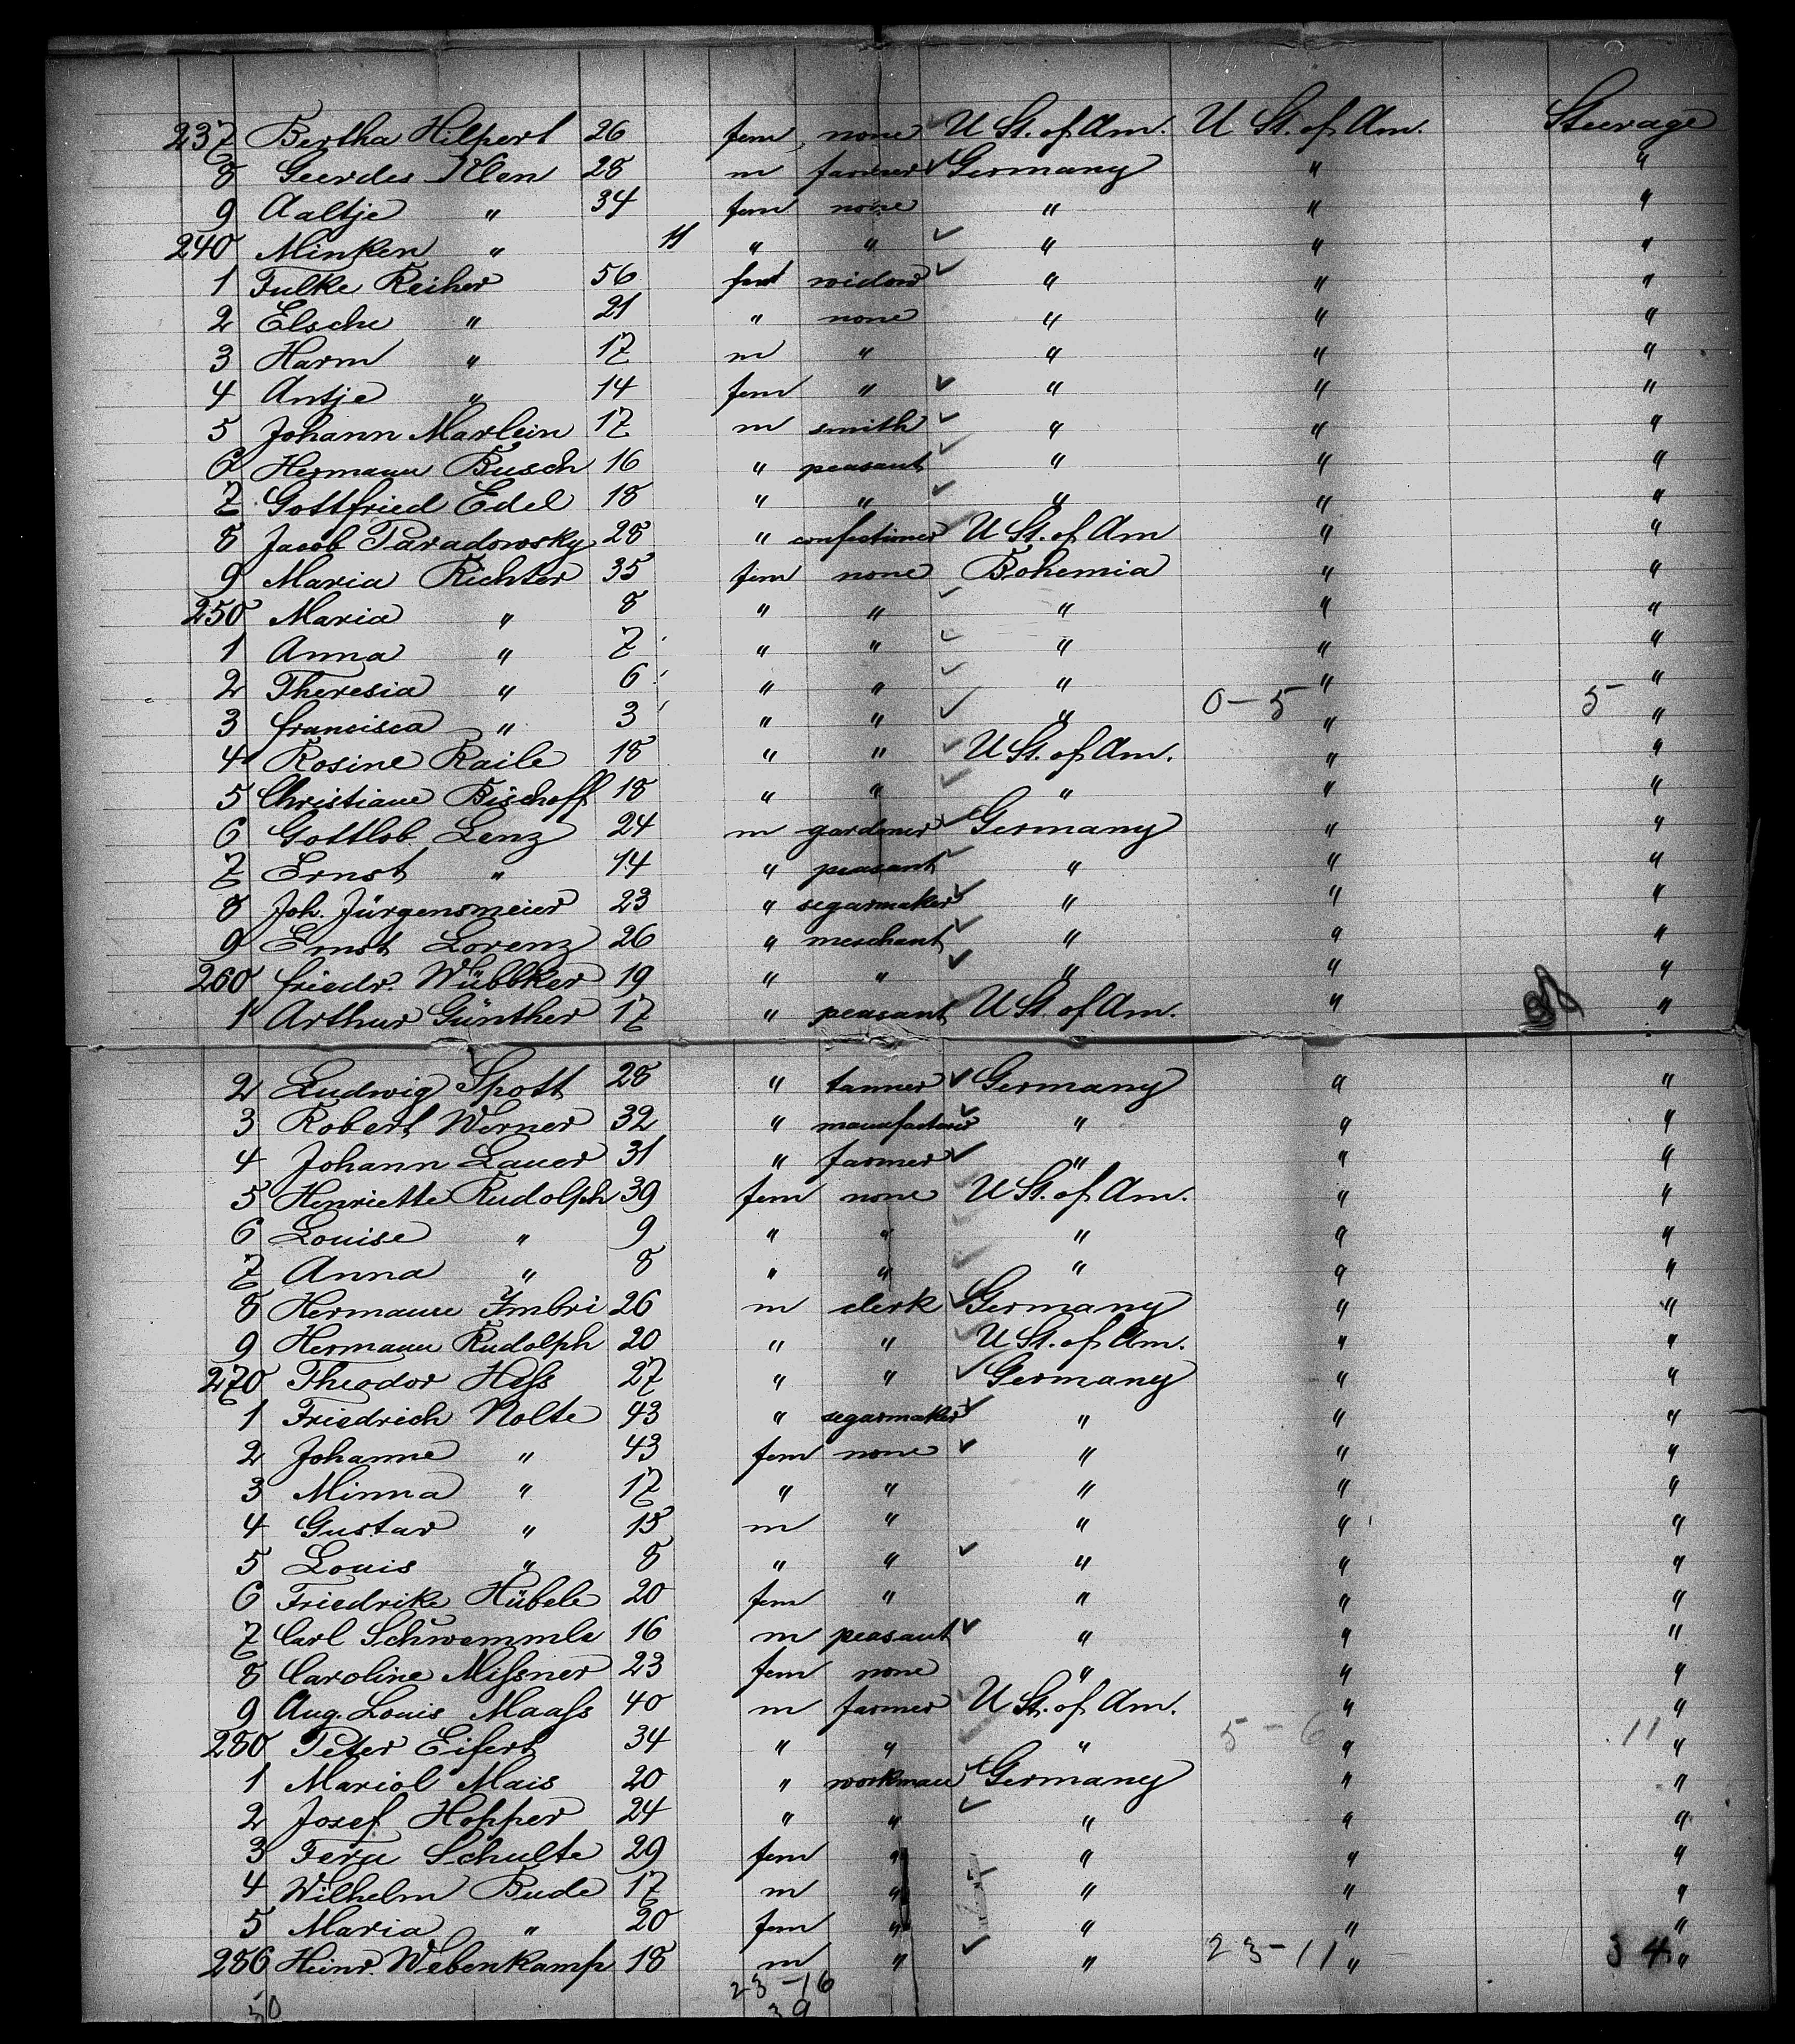 237 Bertha Hilpert 26 fem none U St. of Am. U St. of Am. Steerage
8 Geerdes Klen 28 m farmer Germany " "
9 Aaltje " 34 fem none " " "
240 Minken " 11 " " " " "
1 Fulke Reiher 56 fem widow " " "
2 Elsche " 21 " none " " "
3 Harm " 17 m " " " "
4 Antje " 14 fem " " " "
5 Johann Marlein 17 m smith " " "
6 Hermann Busch 16 " peasant " " "
7 Gottfried Edel 18 " " " " "
8 Jacob Paradowsky 28 " confectioner U St. of Am " "
9 Maria Richter 35 fem none Bohemia " "
250 Maria " 8 " " " " "
1 Anna " 7 " " " " "
2 Theresia " 6 " " " " "
3 Francisca " 3 " " " 0-5 " 5 "
4 Rosine Raile 18 " " U St. of Am. " "
5 Christiane Bischoff 18 " " " " "
6 Gottlob Lenz 24 m gardener Germany " "
7 Ernst " 14 " peasant " " "
8 Joh. Jürgensmeier 23 " segarmaker " " "
9 Ernst Lorenz 26 " merchant " " "
260 Friedr. Wübbker 19 " " " " "
1 Arthur Günther 17 " peasant U St. of Am. " "
2 Ludwig Spott 28 " tanner Germany " "
3 Robert Werner 32 " manufacturer " " "
4 Johann Lauer 31 " farmer " " "
5 Henriette Rudolph 39 fem none U St. of Am. " "
6 Louise " 9 " " " " "
7 Anna " 8 " " " " "
8 Hermann Imbri 26 m clerk Germany " "
9 Hermann Rudolph 20 " " U St. of Am. " "
270 Theodor Hess 27 " " Germany " "
1 Friedrich Nolte 43 " segarmaker " " "
2 Johanne " 43 fem none " " "
3 Minna " 17 " " " " "
4 Gustav " 15 m " " " "
5 Louis " 8 " " " " "
6 Friedrike Hübele 20 fem " " " "
7 Carl Schwemmle 16 m peasant " " "
8 Caroline Missner 23 fem none " " "
9 Aug. Louis Maass 40 m farmer U St. of Am. " "
280 Peter Eifert 34 " " " 5-6 " 11 "
1 Mariol Mais 20 " workman Germany " "
2 Josef Hopper 24 " " " " "
3 Schulte 29 fem " " " "
4 Wilhelm Bude 17 m " " " "
5 Maria " 20 fem " " " "
286 Heinr. Webenkamp 18 m " " 23-11 " 34 "
50 23-16
39